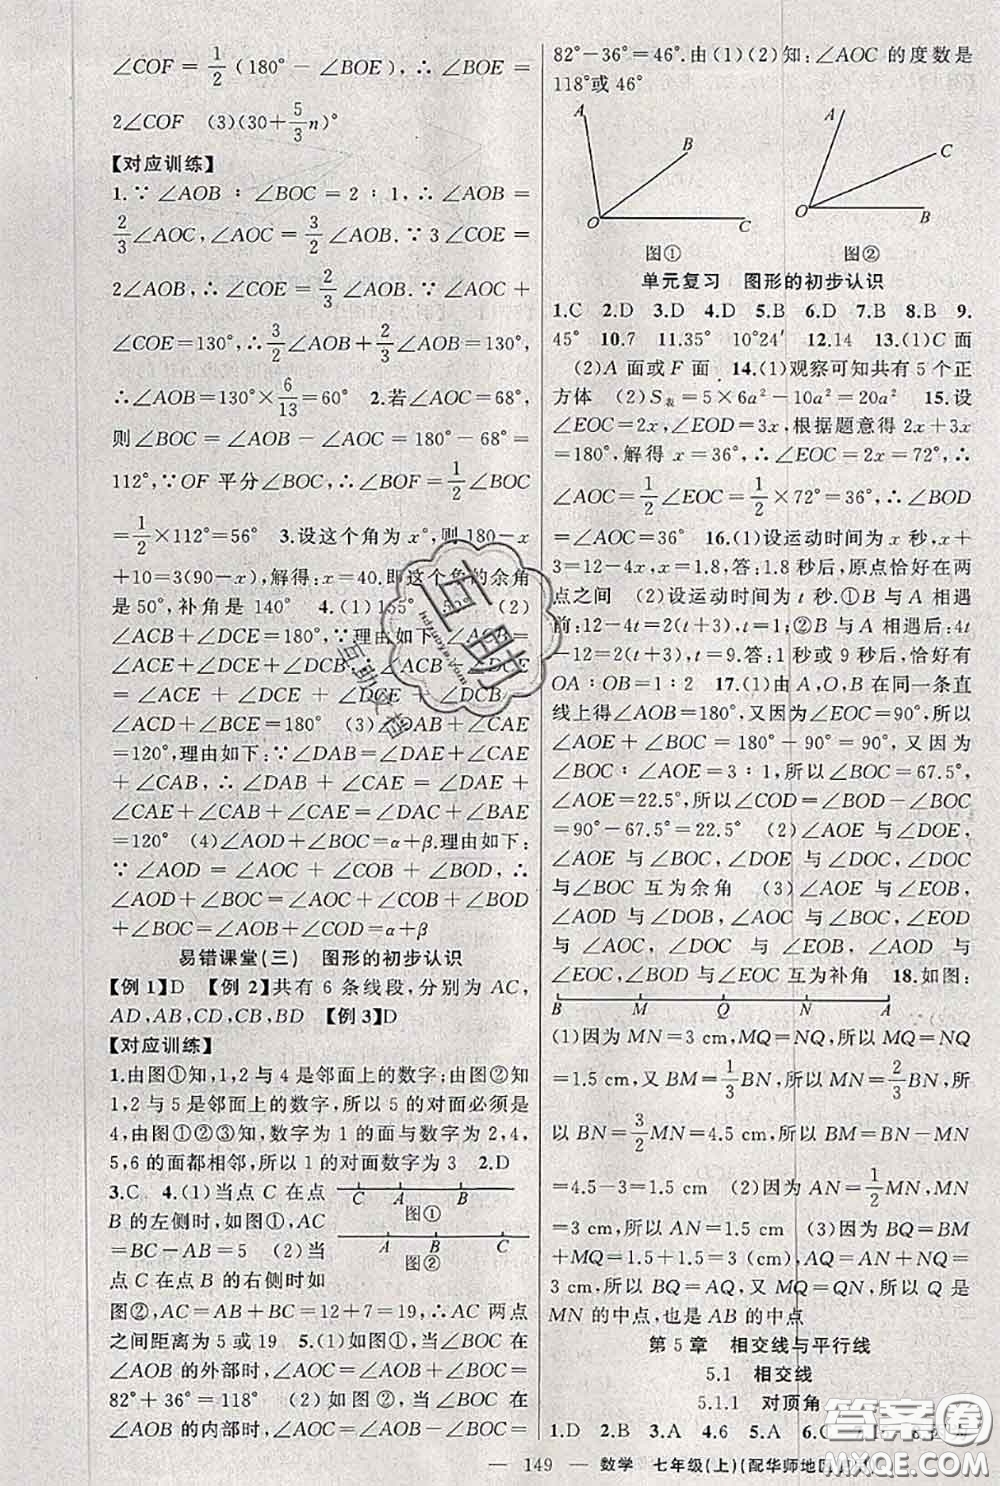 ∠COF = 1/2 (180° − ∠BOE), ∴ ∠BOE =
2∠COF (3)(30+5/3 n)°
【对应训练】
1.∵ ∠AOB ∶ ∠BOC = 2 ∶ 1, ∴ ∠AOB =
2/3∠AOC, ∠AOC = 3/2 ∠AOB. ∵ 3∠COE =
2∠AOB, ∴ ∠COE = 2/3 ∠AOB. ∵ ∠AOC +
∠COE=130°, ∴ 3/2∠AOB+2/3∠AOB=130°,
∴∠AOB=130°×6/13=60° 2.若∠AOC=68°,
则∠BOC=∠AOB−∠AOC=180°−68°=
112°,∵OF 平分∠BOC,∴∠BOF=1/2∠BOC
=1/2×112°=56° 3.设这个角为 x°,则 180−x
+10=3(90−x),解得:x=40.即这个角的余角
是50°,补角是 140° 4.(1)155° (2)
∠ACB+∠DCE=180°,理由如下:
∠ACE + ∠DCE + ∠DCB
∠ACD+∠BCE=180° (3)∠DAB+∠CAE
=120°,理由如下:∵∠DAB=∠DAC+∠CAE
+∠CAB, ∴ ∠DAB + ∠CAE = ∠DAC +
∠CAE+∠CAB+∠CAE=∠DAC+∠BAE
=120° (4)∠AOD+∠BOC=α+β.理由如下:
∵ ∠AOD = ∠AOC + ∠COB + ∠BOD, ∴
∠AOD+∠BOC=∠AOC+∠COB+∠BOD
+∠BOC=∠AOB+∠COD=α+β
易错课堂(三) 图形的初步认识
【例 1】D 【例 2】共有 6 条线段,分别为 AC,
AD,AB,CD,CB,BD 【例 3】D
【对应训练】
1.由图①知,1,2 与 4 是邻面上的数字;由图②知
1,2 与 5 是邻面上的数字,所以 5 的对面必须是
4,由图①②③知,数字为 1 的面与数字为 2,4,
5,6 的面都相邻,所以 1 的对面数字为 3 2.D
3.C 4.(1)当点 C 在点
C A B
B 的左侧时,如图①,AC
图①
=BC−AB=5 (2)当
A B C
点 C 在点 B 的右侧时如
图②
图②,AC=AB+BC=12+7=19,∴AC 两点
之间距离为 5 或 19 5.(1)如图①,当∠BOC 在
∠AOB 的外部时,∠AOC=∠AOB+∠BOC=
82°+36°=118° (2)如图②,当∠BOC 在
∠AOB 的内部时,∠AOC=∠AOB−∠BOC=
82°−36°=46°.由(1)(2)知:∠AOC 的度数是
118°或 46°
A B O C
A C O B
图① 图②
单元复习 图形的初步认识
1.C 2.D 3.D 4.D 5.B 6.D 7.B 8.B 9.
45° 10.7 11.35° 10°24′ 12.14 13.(1)C 面
(2)A 面或 F 面 14.(1)观察可知共有 5 个正
方体 (2)S表=5×6a²−10a²=20a² 15.设
∠EOC=2x,∠EOD=3x,根据题意得 2x+3x
=180°,解得 x=36°,∴∠EOC=2x=72°,∴
∠AOC=1/2∠EOC=1/2×72°=36°,∴∠BOD
=∠AOC=36° 16.(1)设运动时间为 x 秒,x+
3=12−4x,x=1.8,答:1.8 秒后,原点恰好在两
点之间 (2)设运动时间为 t 秒.①B 与 A 相遇
前:12−4t=2(t+3),t=1;②B 与 A 相遇后:4t
−12=2(t+3),t=9.答:1 秒或 9 秒后,恰好有
OA∶OB=1∶2 17.(1)由 A,O,B 在同一条直
线上得∠AOB=180°,又因为∠EOC=90°,所以
∠AOE+∠BOC=180°−90°=90°,又因为
∠BOC∶∠AOE=3∶1,所以∠BOC=67.5°,
∠AOE=22.5°,所以∠COD=∠BOD−∠BOC
=90°−67.5°=22.5° (2)∠AOE 与∠DOE,
∠AOE 与∠BOC,∠DOE 与∠DOC,∠DOC
与∠BOC 互为余角 (3)∠AOE 与∠EOB,
∠AOD 与∠DOB,∠BOC 与∠AOC,∠EOD
与∠EOB,∠EOC 与∠BOD,∠EOC 与
∠AOD,∠DOC 与∠BOE 互为补角 18.如图:
B M Q N A
(1)因为 MN=3 cm,MQ=NQ,所以 MQ=NQ
=1.5 cm,又 BM=1/3BN,所以 MN=2/3BN,所
以 BN=3/2MN=4.5 cm,所以 BM=BN−MN
=4.5−3=1.5 cm (2)因为 AN=1/2MN,MN
=3 cm,所以 AN=1.5 cm (3)因为 BQ=BM
+MQ=1.5+1.5=3 (cm),AQ=AN+NQ=
3 cm,所以 BQ=AQ,又 MQ=QN,所以 Q 是
MN 的中点,也是 AB 的中点
第 5 章 相交线与平行线
5.1 相交线
5.1.1 对顶角
1.D 2.B 3.A 4.6 5.A 6.C
— 149 — 数学 七年级(上)(配华师地区
互助
互助文昌
答案圈